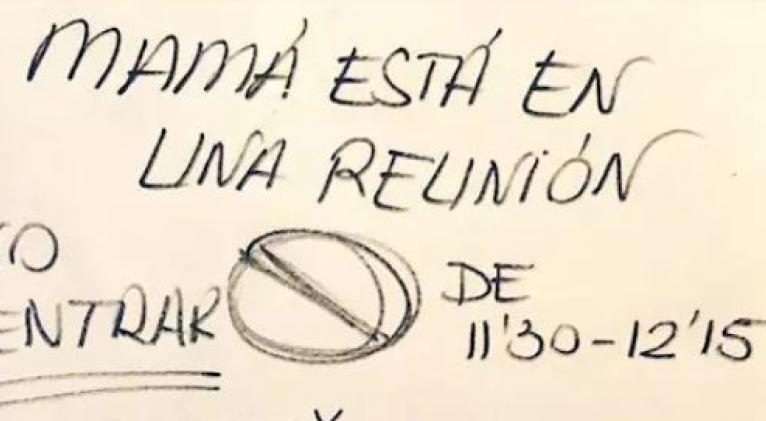 MAMÁ ESTÁ EN
UNA REUNIÓN
ENTRAR
DE
11'30-12'15